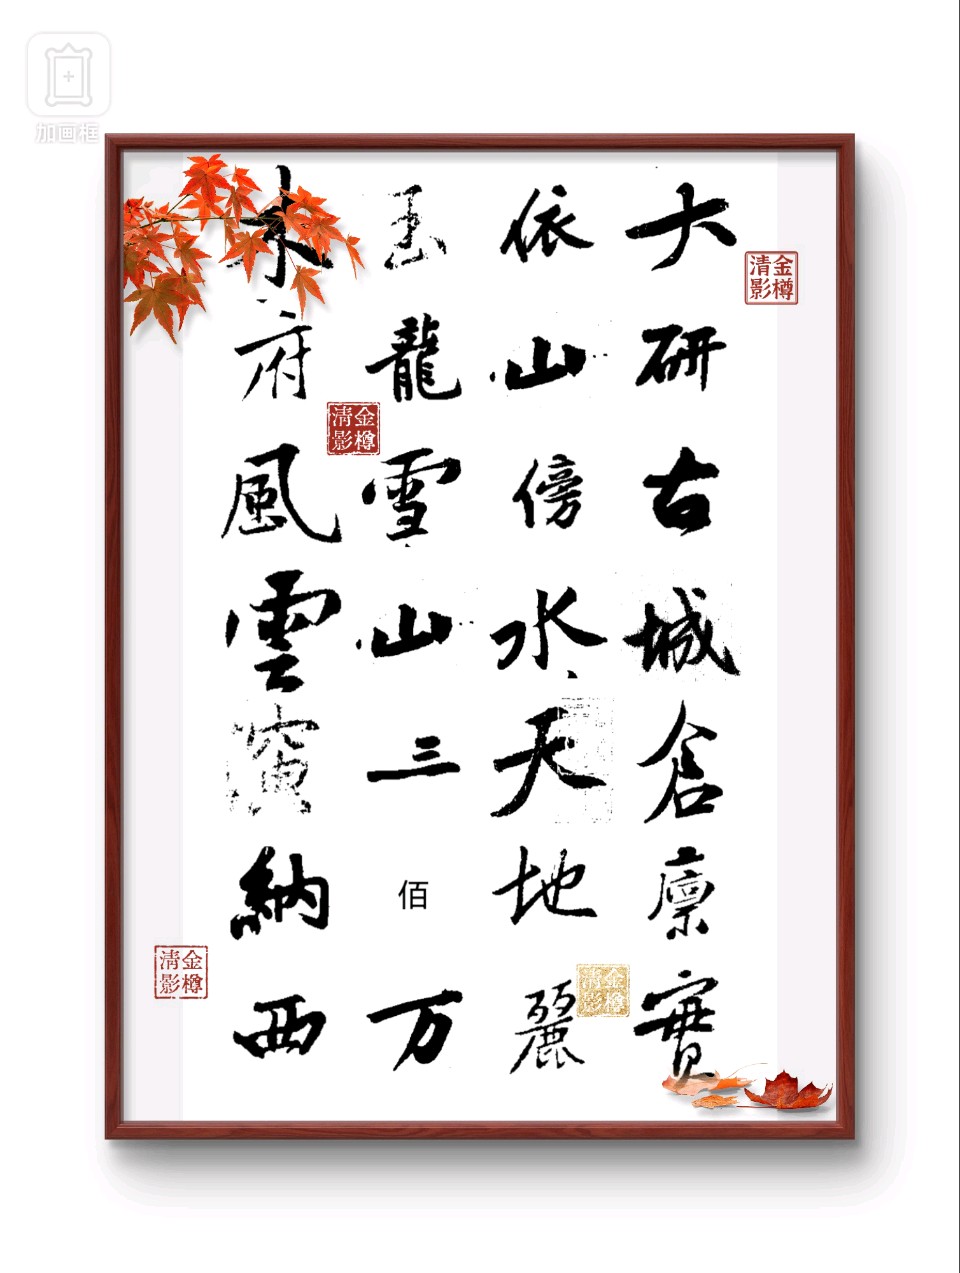 加画框
大研古城倉廩實
依山傍水天地麗
玉龍雪山三佰万
木府風雲演納西
金樽清影
金樽清影
金樽清影
金樽清影